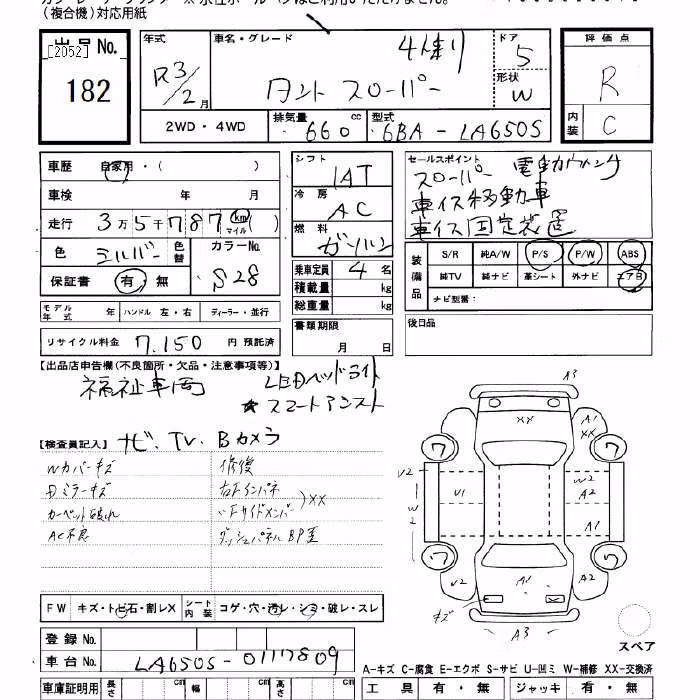 (複合機)対応用紙
出品No.
[2052]
182
年式
R3/2月
車名・グレード
4人乗り
タント スローパー
ドア
5
形状
W
評価点
R
内装
C
2WD・4WD
排気量
660
cc
型式
6BA-LA650S
車歴 自家用・( )
車検 年 月
走行 3万5千787 km マイル ( )
色 シルバー 色替
カラーNo. S28
保証書 有・無
シフト
IAT
冷房
AC
燃料
ガソリン
乗車定員 4 名
積載量 kg
総重量 kg
セールスポイント
スローパー 電動ウィンチ
車イス移動車
車イス固定装置
装備品
S/R 純A/W P/S P/W ABS
純TV 純ナビ 革シート 外ナビ エアB
ナビ型番:
モデル年式 年
ハンドル 左・右
ディーラー・並行
書類期限
月 日
後日品
リサイクル料金 7.150 円 預託済
【出品店申告欄(不良箇所・欠品・注意事項等)】
福祉車両
LEDヘッドライト
★スマートアシスト
【検査員記入】
ナビ、TV、Bカメラ
Wカバーキズ
Dミラーキズ
カーペット破れ
AC不良
修復
右Fインパネ
〃Fサイドメンバー
)XX
ダッシュパネルBP歪
A3
XX
A1
XX
ワ
ワ
V2
W2
U1
W2
A2
A1
ワ
ワ
V2
A1
A2
キズ
A3
スペア
FW キズ・トビ石・割レX
シート内装 コゲ・穴・汚レ・シミ・破レ・スレ
登録No.
車台No. LA650S-0117809
A-キズ C-腐食 E-エクボ S-サビ U-凹ミ W-補修 XX-交換済
車庫証明用 長さ cm 幅 cm 高さ cm
工具 有・無 ジャッキ 有・無